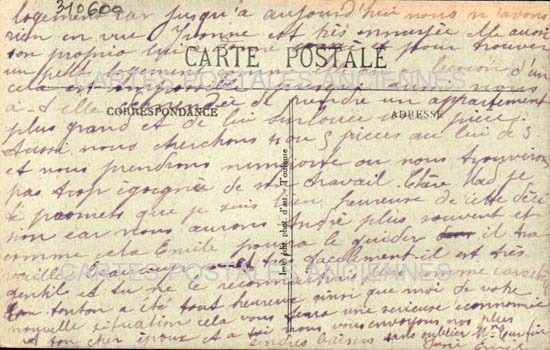 310600
logement car jusqu'a aujourd'hui nous n'avons
rien en vue Yvonne est très ennuyée elle aussi
son proprio lui pour trouver
un petit logement d'un
CARTE POSTALE
CARTES POSTALES ANCIENNES
cela est nous
a-t-elle de prendre un appartement
CORRESPONDANCE
ADRESSE
plus grand et de lui une pièce.
Aussi nous cherchons 4 ou 5 pièces au lieu de 3
et nous prendrons n'importe ou nous trouverons
pas trop éloignée de son travail. Chère Mad je
te promets que je suis bien heureuse de cette déci
sion car nous aurons André plus souvent et
comme cela Emile pourra le guider il tra
vaille beaucoup et très facilement il est très
CARTES POSTALES ANCIENNES
gentil et tu ne le reconnaitrais comme caractère
Ton tonton a été tout heureux ainsi que moi de votre
nouvelle situation cela vous fera une sérieuse économie
a ton cher époux et a toi nous vous envoyons nos plus
tendres baisers sans oublier Mme
Imp. phot. d'art. Toulouse